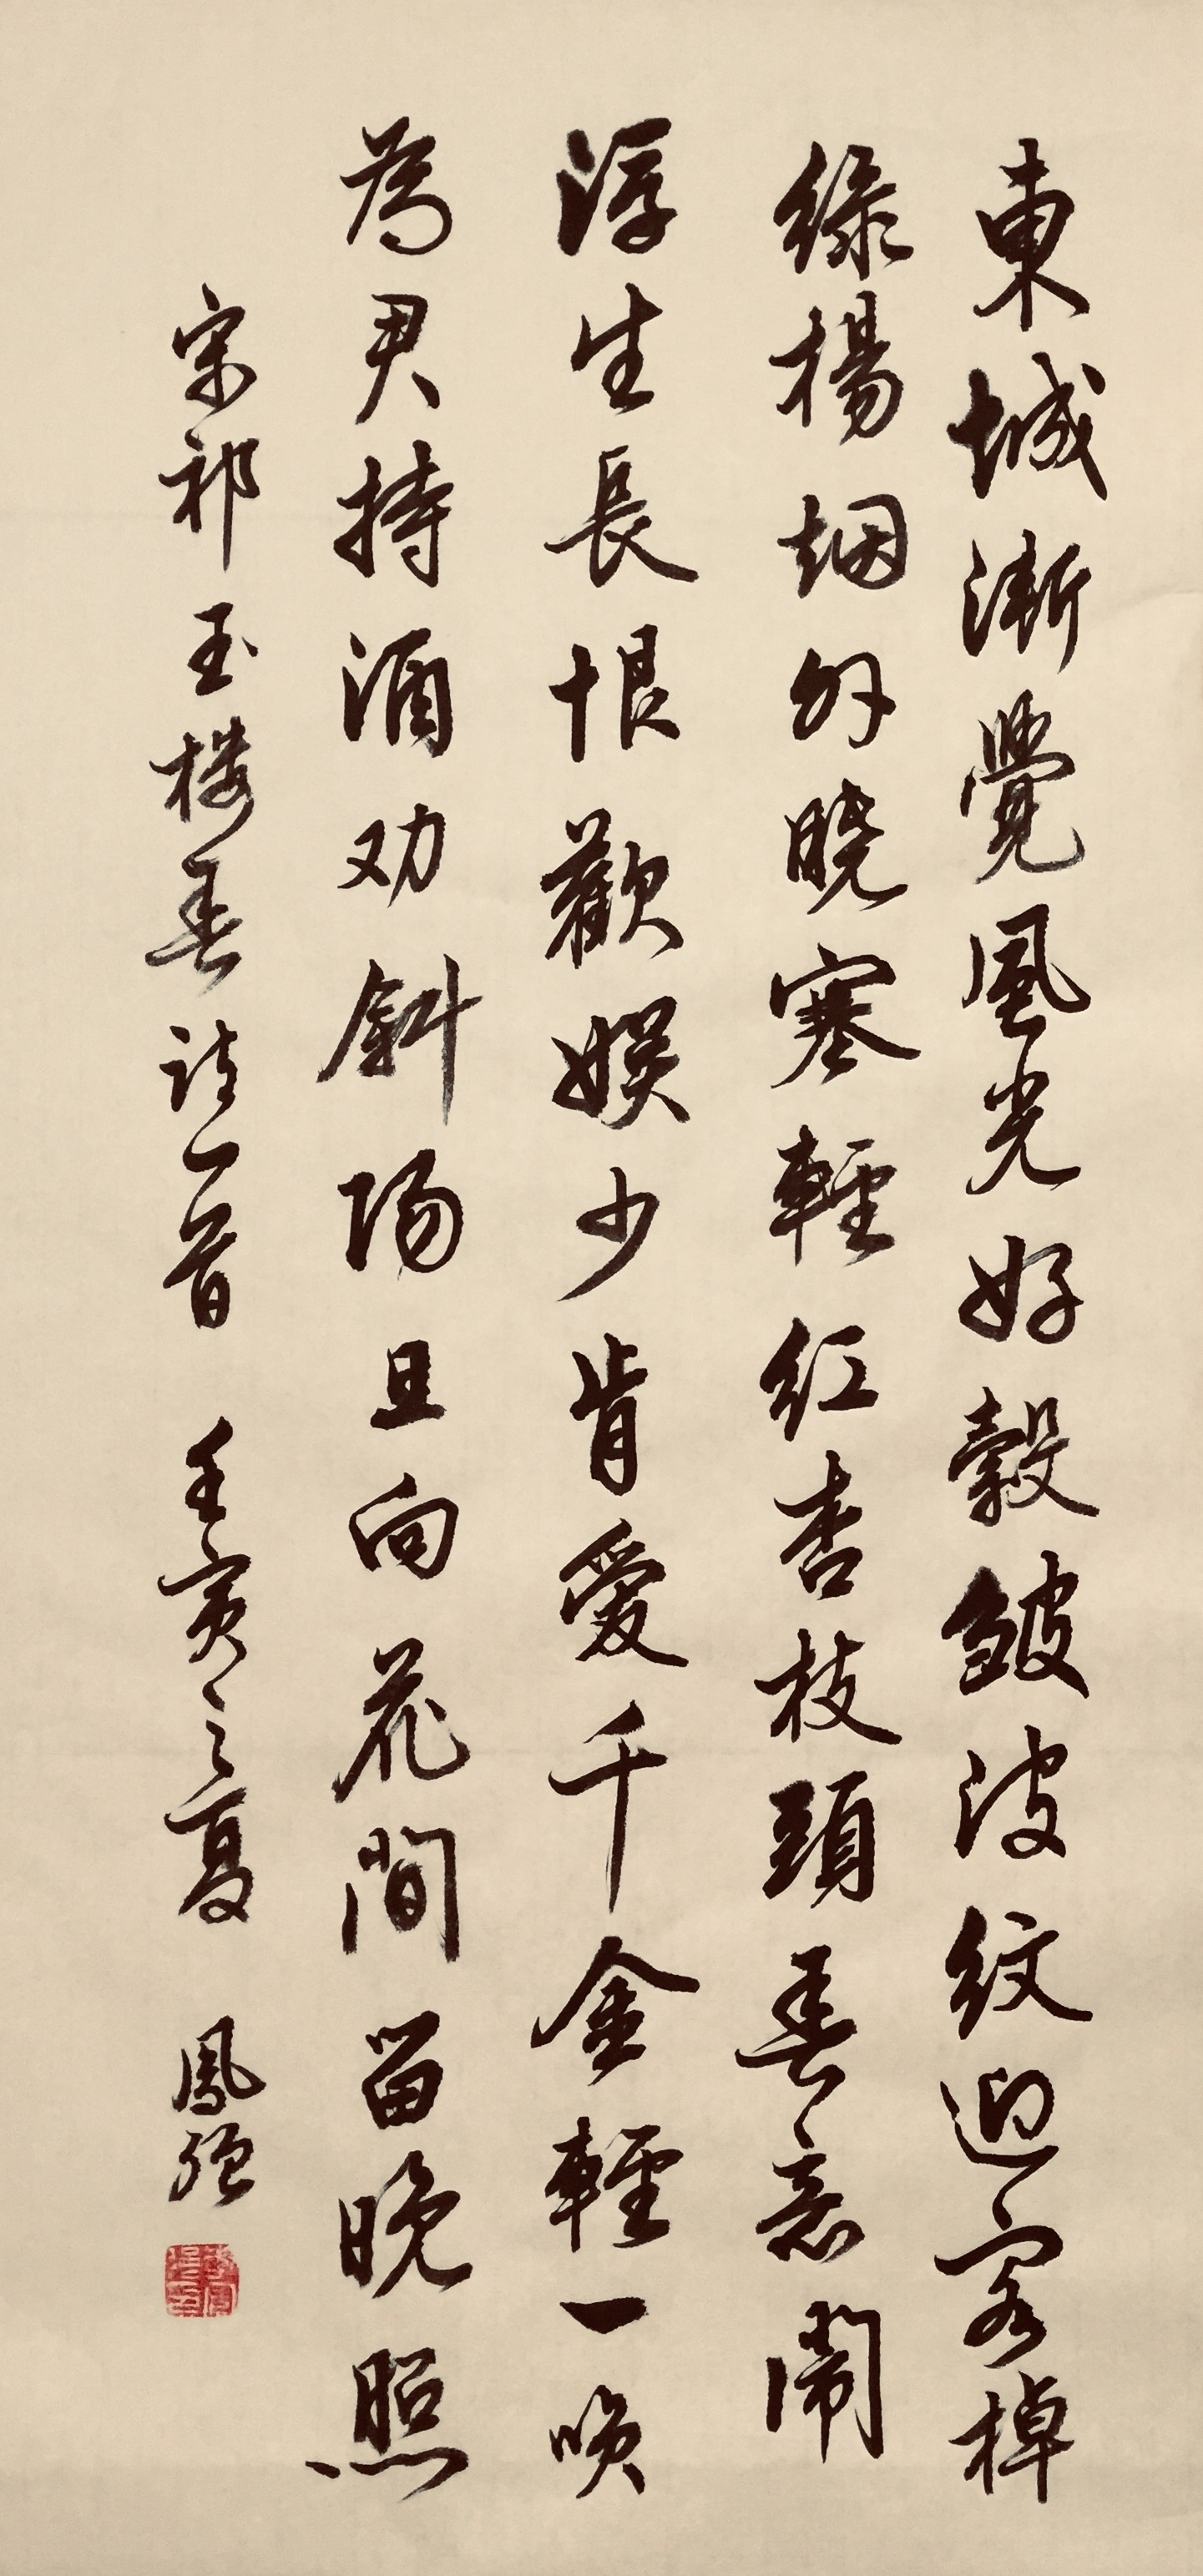 東城漸覺風光好縠皺波紋迎客棹
綠楊烟外曉寒輕紅杏枝頭春意鬧
浮生長恨歡娛少肯愛千金輕一唤
為君持酒劝斜陽且向花間留晚照
宋祁玉楼春詩一首 壬寅之夏 鳳強